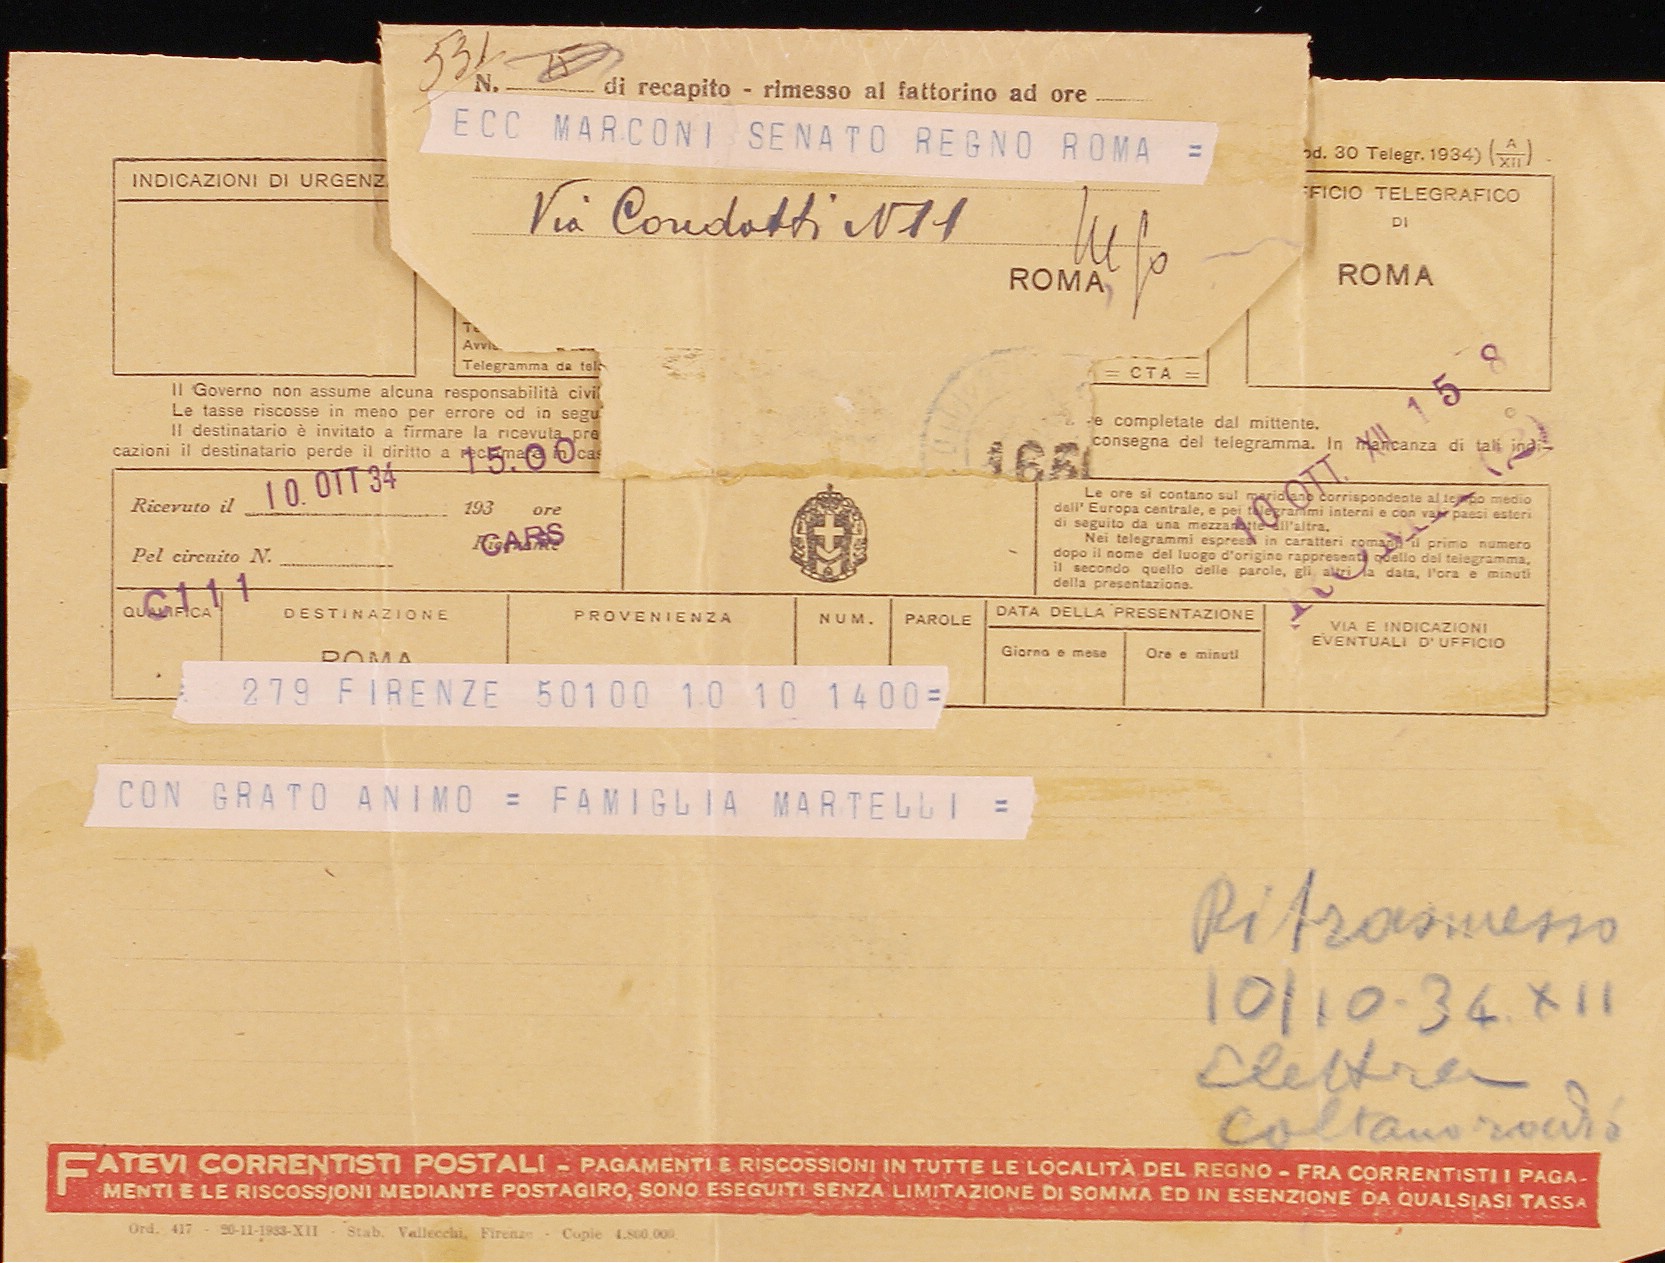 531
N. di recapito - rimesso al fattorino ad ore
ECC MARCONI SENATO REGNO ROMA =
Via Condotti N 11
ROMA
od. 30 Telegr. 1934) (A/XII)
INDICAZIONI DI URGENZ
FFICIO TELEGRAFICO
DI
ROMA
Avvi
Telegramma da tel
= CTA =
15 8
Il Governo non assume alcuna responsabilità civil
Le tasse riscosse in meno per errore od in segu
Il destinatario è invitato a firmare la ricevuta pre
cazioni il destinatario perde il diritto a reclamare in cas
e completate dal mittente.
consegna del telegramma. In mancanza di tali indi-
15.00
10 OTT. XII
Ricevuto il 10. OTT 34 193 ore
CARS
Pel circuito N.
C111
Le ore si contano sul meridiano corrispondente al tempo medio
dell'Europa centrale, e pei telegrammi interni e con vari paesi esteri
di seguito da una mezzanotte all'altra.
Nei telegrammi espressi in caratteri romani il primo numero
dopo il nome del luogo d'origine rappresenta quello del telegramma,
il secondo quello delle parole, gli altri la data, l'ora e minuti
della presentazione.
QUALIFICA DESTINAZIONE PROVENIENZA NUM. PAROLE DATA DELLA PRESENTAZIONE VIA E INDICAZIONI
EVENTUALI D'UFFICIO
Giorno e mese Ore e minuti
ROMA
279 FIRENZE 50100 10 10 1400=
CON GRATO ANIMO = FAMIGLIA MARTELLI =
Ritrasmesso
10/10-34 XII
Elettra
Coltano radio
FATEVI CORRENTISTI POSTALI - PAGAMENTI E RISCOSSIONI IN TUTTE LE LOCALITÀ DEL REGNO - FRA CORRENTISTI I PAGA-
MENTI E LE RISCOSSIONI MEDIANTE POSTAGIRO, SONO ESEGUITI SENZA LIMITAZIONE DI SOMMA ED IN ESENZIONE DA QUALSIASI TASSA
Ord. 417 - 20-11-1933-XII - Stab. Vallecchi, Firenze - Copie 4.800.000